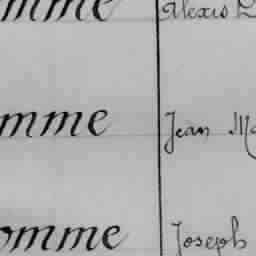 mme Alexis
mme Jean Ma
omme Joseph